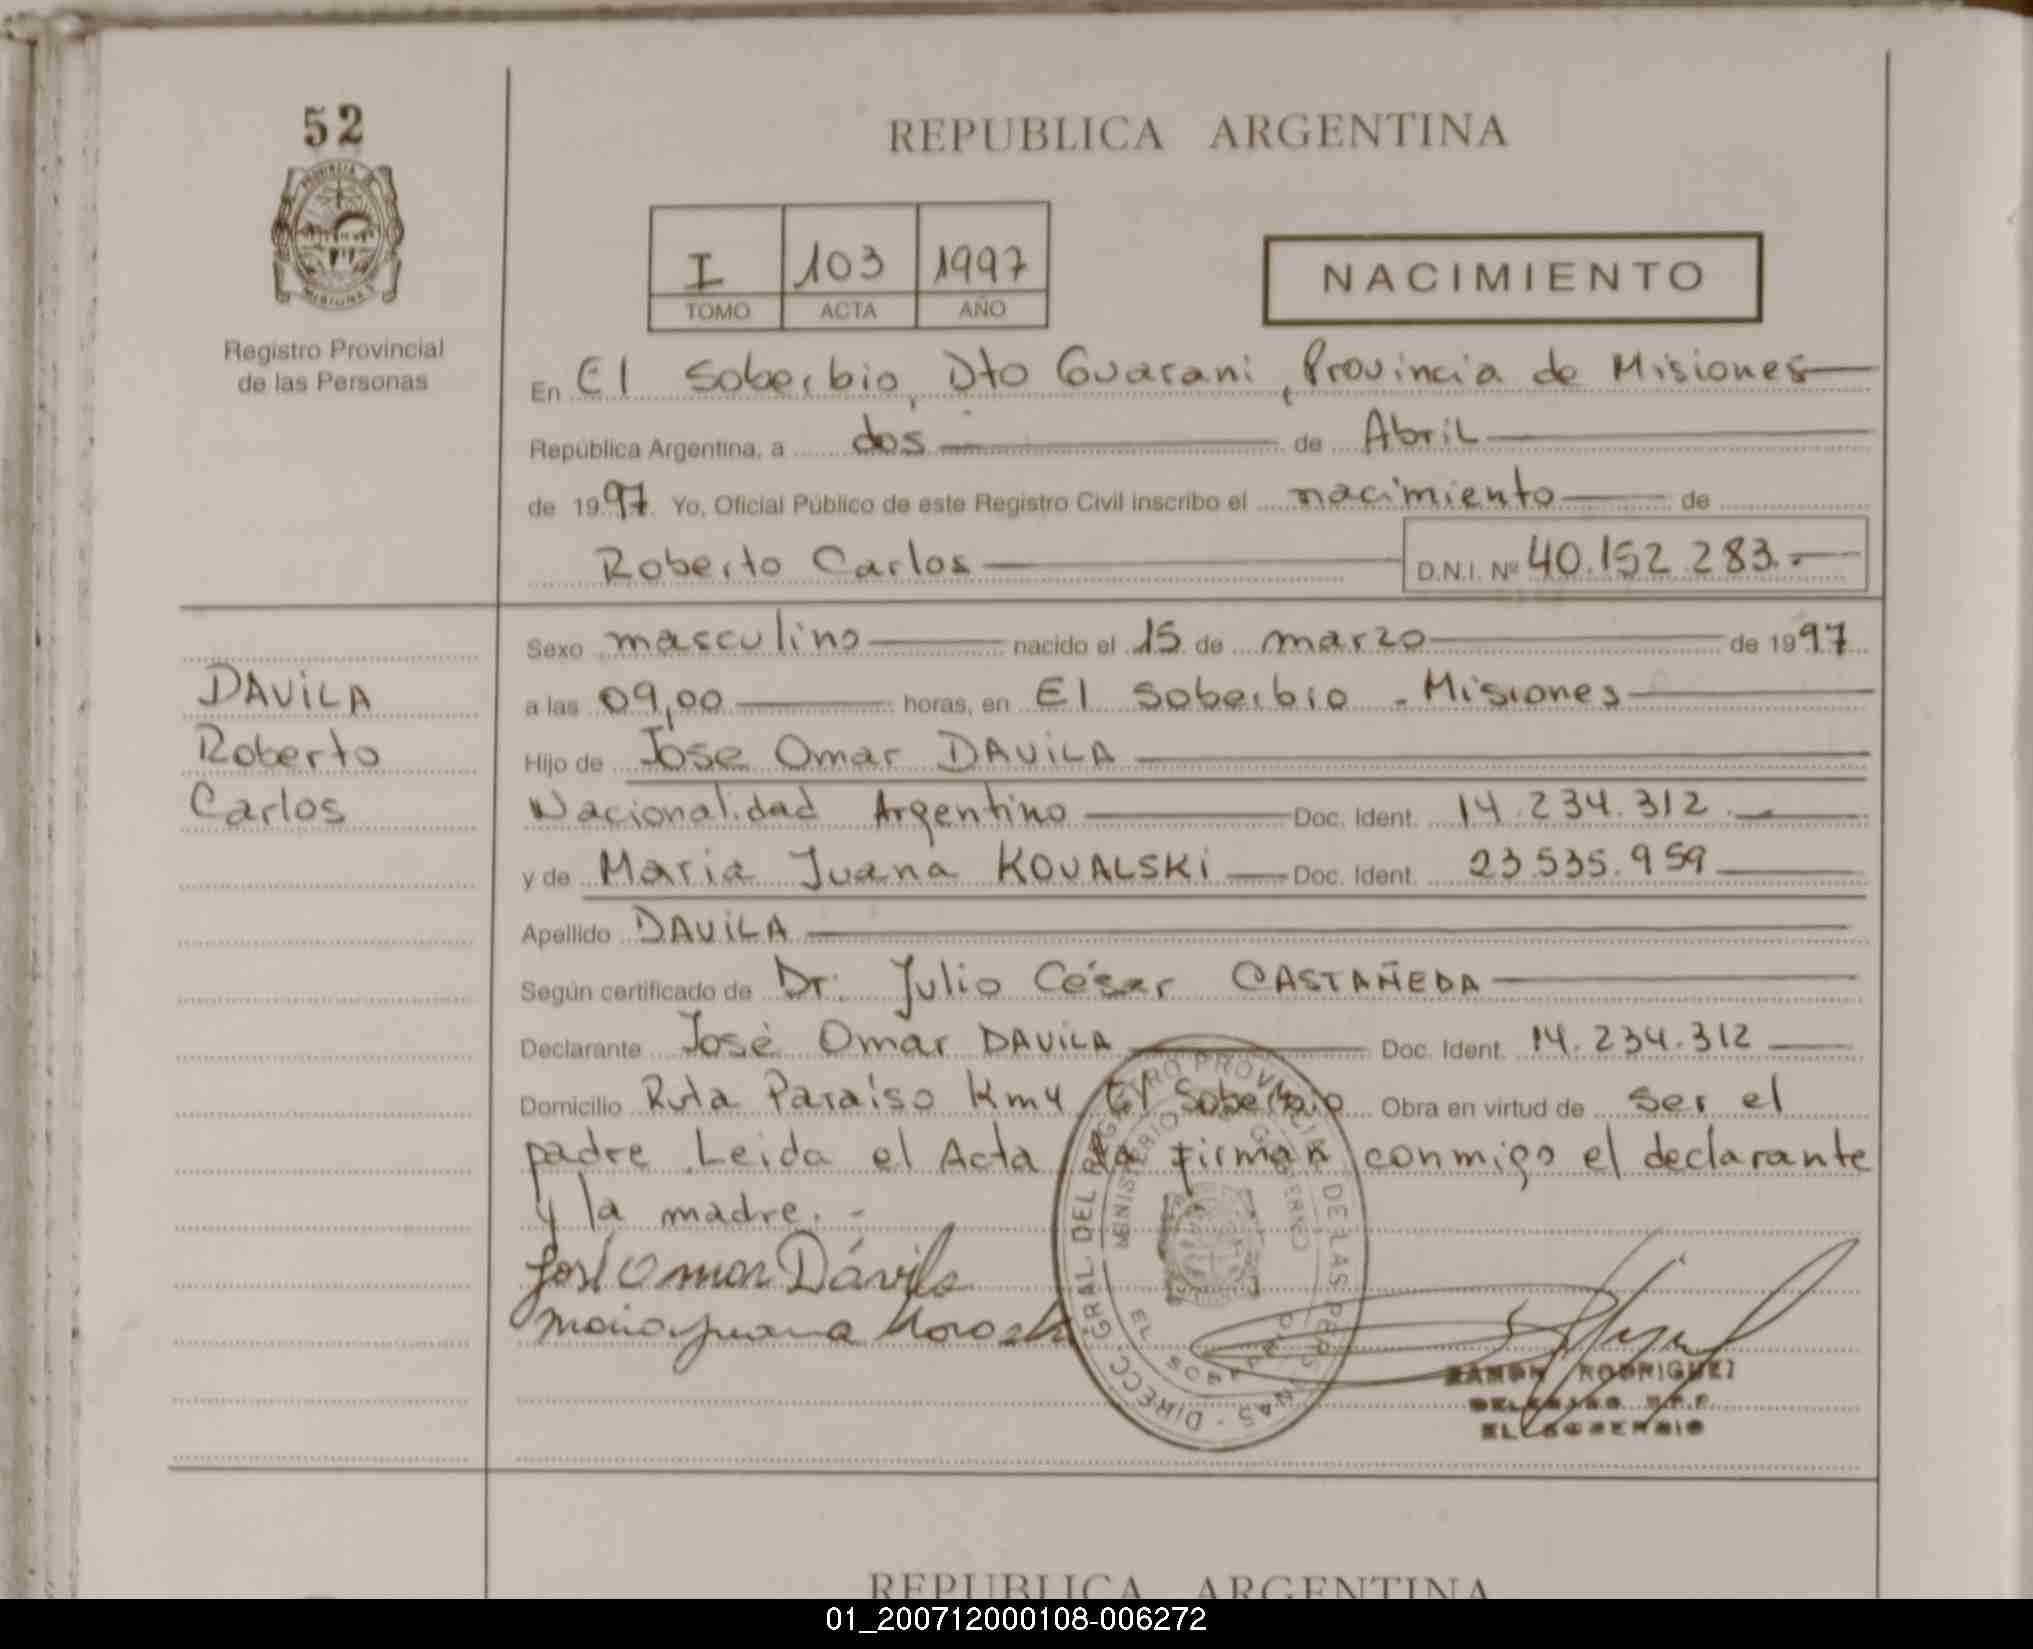 52
REPUBLICA ARGENTINA
I 103 1997
TOMO ACTA AÑO
NACIMIENTO
Registro Provincial
de las Personas
En El Soberbio, Dto Guarani, Provincia de Misiones
República Argentina, a dos de Abril
de 1997 Yo, Oficial Público de este Registro Civil inscribo el nacimiento de
Roberto Carlos D.N.I. Nº 40.152.283.-
DAViLA
Roberto
Carlos
Sexo masculino nacido el 15 de marzo de 1997
a las 09,00 horas, en El Soberbio - Misiones
Hijo de Jose Omar DAViLA
Nacionalidad Argentino Doc. Ident. 14.234.312.
y de Maria Juana KOVALSKi Doc. Ident. 23.535.959
Apellido DAViLA
Según certificado de Dr. Julio César CASTAÑEDA
Declarante José Omar DAViLA Doc. Ident. 14.234.312
Domicilio Ruta Paraiso Km4 El Soberbio Obra en virtud de ser el
padre Leida el Acta la firman conmigo el declarante
y la madre.-
José Omar Dávila
Maria Juana
DIRECC. GRAL. DEL REGISTRO PROVINCIAL DE LAS PERSONAS
MINISTERIO DE GOBIERNO
EL SOBERBIO
RAMON RODRIGUEZ
DELEGADO R.P.P.
EL SOBERBIO
REPUBLICA ARGENTINA
01_200712000108-006272